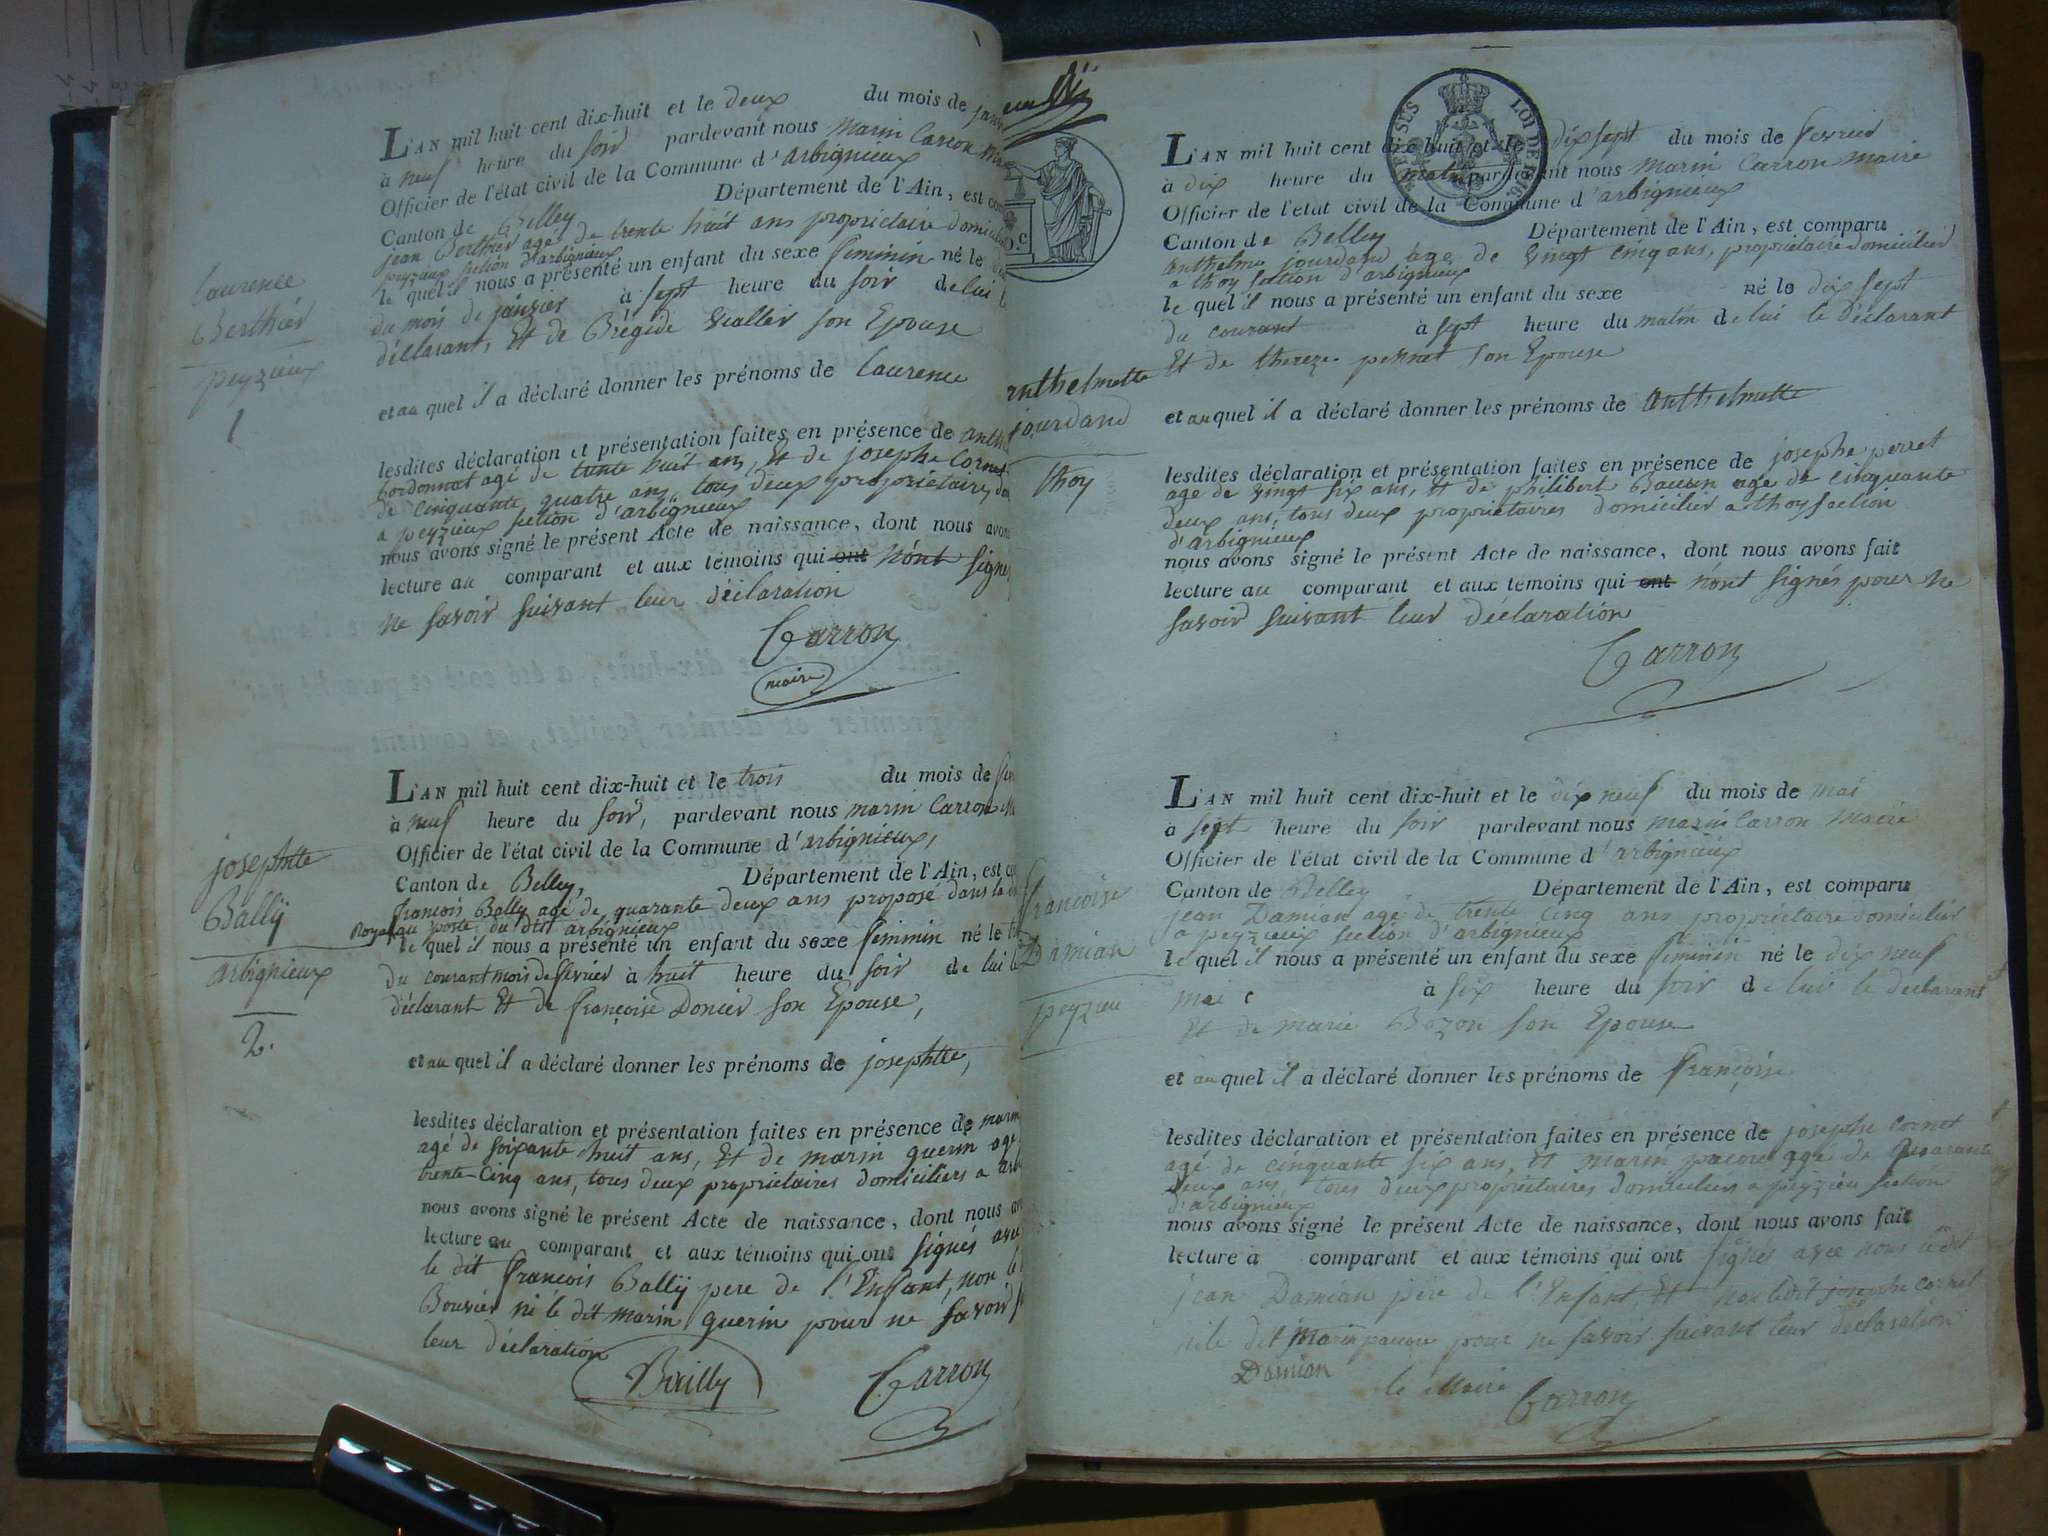 L'AN mil huit cent dix-huit et le deux du mois de
à neuf heure du soir pardevant nous marin Carron
Officier de l'état civil de la Commune d'arbignieux
Canton de Belley Département de l'Ain, est
jean Berthier agé de trente huit ans propriétaire
peyzieux section d'arbignieux
le quel il nous a présenté un enfant du sexe feminin né le
du mois de janvier à sept heure du soir de lui
déclarant, Et de Brégide vialler son Epouse
et au quel il a déclaré donner les prénoms de laurence
lesdites déclaration et présentation faites en présence de
bordonnat agé de trente huit ans, Et de josephe Cornet
de cinquante quatre ans tous deux proprietaires
a peyzieux section d'arbignieux
nous avons signé le présent Acte de naissance, dont nous
lecture au comparant et aux témoins qui ont n'ont signé
ne savoir suivant leur déclaration
Carron
maire
laurence
Berthier
peyzieux
1
L'AN mil huit cent dix-huit et le trois du mois de
à neuf heure du soir, pardevant nous marin Carron
Officier de l'état civil de la Commune d'arbignieux,
Canton de Belley, Département de l'Ain, est
françois Bally agé de quarante deux ans proposé dans la
Royal au poste du dit arbignieux
le quel il nous a présenté un enfant du sexe feminin né le
du courant mois de fevrier à huit heure du soir de lui le
déclarant Et de françoise Donier son Epouse,
et au quel il a déclaré donner les prénoms de josephtte,
lesdites déclaration et présentation faites en présence de marin
agé de soixante huit ans, Et de marin guerin agé
trente-Cinq ans, tous deux proprietaires domiciliers a
nous avons signé le présent Acte de naissance, dont nous
lecture au comparant et aux témoins qui ont signés avec
le dit françois Bally pere de l'Enfant, non le
Bouvier ni le dit marin guerin pour ne savoir
leur déclaration
Bailly Carron
josephtte
Bally
arbignieux
2.
LOI DE 1816.
L'AN mil huit cent dix-huit et le dix sept du mois de fevrier
à dix heure du matin pardevant nous marin Carron maire
Officier de l'état civil de la Commune d'arbignieux
Canton de Belley Département de l'Ain, est comparu
anthelme jourdand age de vingt cinq ans, proprietaire domicilier
a thoy section d'arbignieux
le quel il nous a présenté un enfant du sexe né le dix sept
du courant à sept heure du matin de lui le déclarant
Et de thereze pernet son Epouse
et au quel il a déclaré donner les prénoms de anthelmette
lesdites déclaration et présentation faites en présence de josephe perret
age de vingt six ans, et de philibert age de cinquante
deux ans, tous deux proprietaires domicilier a thoy section
d'arbignieux
nous avons signé le présent Acte de naissance, dont nous avons fait
lecture au comparant et aux témoins qui ont n'ont signés pour ne
savoir suivant leur déclaration
Carron
anthelmette
jourdand
thoy
L'AN mil huit cent dix-huit et le dix neuf du mois de mai
à sept heure du soir pardevant nous marin Carron maire
Officier de l'état civil de la Commune d'arbignieux
Canton de Belley Département de l'Ain, est comparu
jean Damian agé de trente cinq ans proprietaire domicilier
a peyzieux section d'arbignieux
le quel il nous a présenté un enfant du sexe feminin né le dix neuf
mai à six heure du soir de lui le déclarant
Et de marie Bozon son Epouse
et au quel il a déclaré donner les prénoms de françoise
lesdites déclaration et présentation faites en présence de josephe cornet
agé de cinquante six ans, Et marin agé de quarante
deux ans, tous deux proprietaires domiciliers a peyzieu section
d'arbignieux
nous avons signé le présent Acte de naissance, dont nous avons fait
lecture a comparant et aux témoins qui ont signés avec nous ledit
jean Damian père de l'Enfant, Et non ledit josephe cornet
ni le dit marin pour ne savoir suivant leur déclaration
Damian
le Maire Carron
françoise
Damian
peyzieu